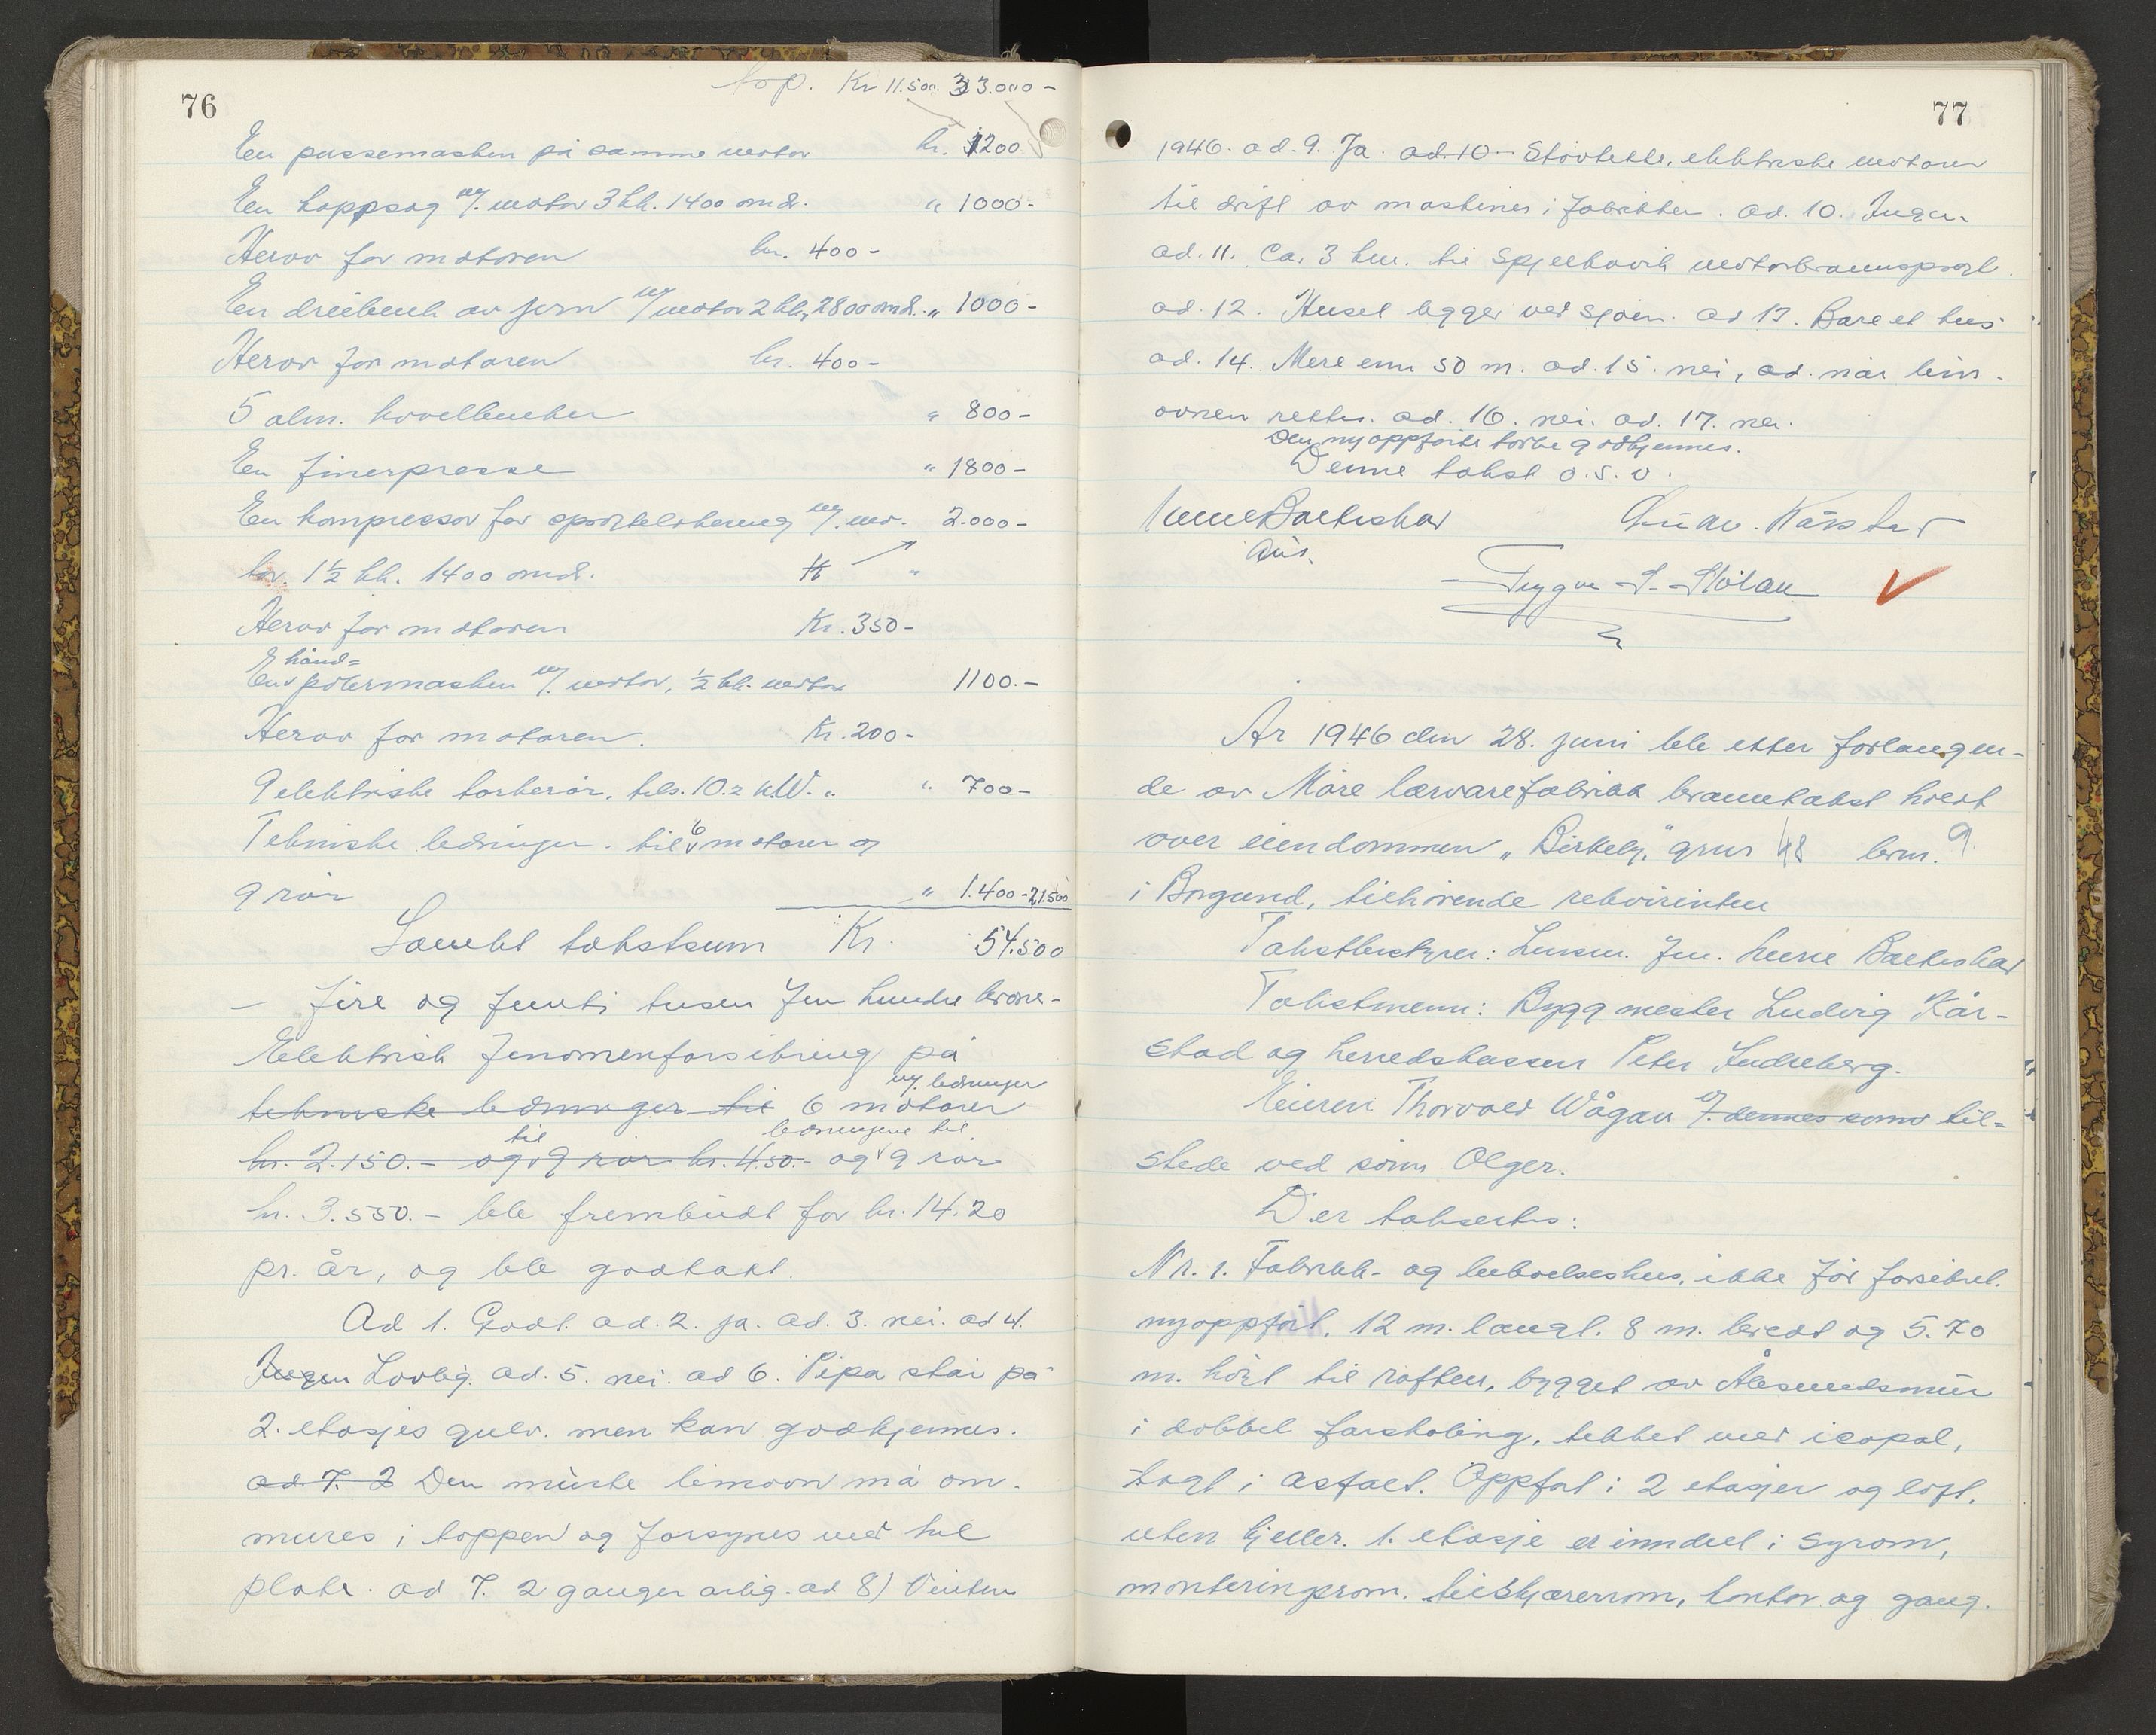 76
Kop. Kr 11.500. 33.000-
En pussemaskin på samme motor kr. 1200
En kappsag m/. motor 3 hk. 1400 omdr. " 1000-
Herav for motoren kr. 400-
En dreiebenk av jern m/ motor 2 hk, 2800 omdr. " 1000-
Herav for motoren kr. 400-
5 alm. høvelbenker " 800-
En finerpresse " 1800-
En kompressor for sprøytelakering m/. mo- 2.000-
tor. 1½ hk. 1400 omdr. "
Herav for motoren Kr. 350-
hånd=
En polermaskin m/. motor, ½ hk. motor 1100.-
Herav for motoren. Kr. 200-
9 elektriske tørkerør, tils. 10.2 kW. " " 700-
Tekniske ledninger. til 6 motorer og
9 rør " 1.400- 21.500
Samlet takstsum Kr. 54.500
- fire og femti tusen fem hundre kroner-
Elektrisk fenomenforsikring på
m/. ledninger
tekniske ledninger til 6 motorer
til ledningene til
kr. 2.150.- og 9 rør kr. 450.- og 9 rør
kr. 3.550.- ble frembudt for kr. 14.20
pr. år, og ble godtatt.
Ad 1. Godt. ad. 2. ja. ad. 3. nei. ad 4.
Ingen Lovlig. ad. 5. nei. ad 6. Pipa står på
2. etasjes gulv. men kan godkjennes.
ad. 7. 2 Den murte limovn må om-
mures i toppen og forsynes med hel
plate. ad 7. 2 ganger årlig. ad 8) Vinteren
77
1946. ad. 9. Ja. ad. 10. Støvtette, elektriske motorer
til drift av maskiner i fabrikken. ad. 10. Ingen
ad. 11. Ca. 3 km. til Spjelkavik motorbrannsprøyt.
ad. 12. Huset ligger ved sjøen. ad 13. Bare et hus
ad. 14. Mere enn 50 m. ad. 15. nei, ad. når lim-
ovnen rettes. ad. 16. nei. ad. 17. nei.
Den nyoppførte tørke godkjennes.
Denne takst o.s.v.
Ludv. Kårstad
Trygve
År 1946 den 28. juni ble etter forlangen-
de av Møre lærvarefabrikk branntakst holdt
over eiendommen "Birkely," gnr 48 brnr. 9
i Borgund, tilhørende rekvirenten
Takstbestyrer: Lensm. fm. Bakteskar
Takstmenn: Byggmester Ludvig Kår-
stad og herredskasserer Peter Indreberg.
Eieren Thorvald Wågan v/. dennes sønn til-
stede ved sønn Olger.
Der taksertes:
Nr. 1. Fabrikk- og beboelseshus, ikke før forsikret.
nyoppført, 12 m. langt. 8 m. bredt og 5.70
m. høyt til raften, bygget av Ålesundsmur
i dobbel forskaling, tekket med icopal,
lagt i asfalt. Oppført i 2 etasjer og loft,
uten kjeller. 1. etasje er inndelt i syrom,
monteringsrom. tilskjærerrom, kontor og gang.